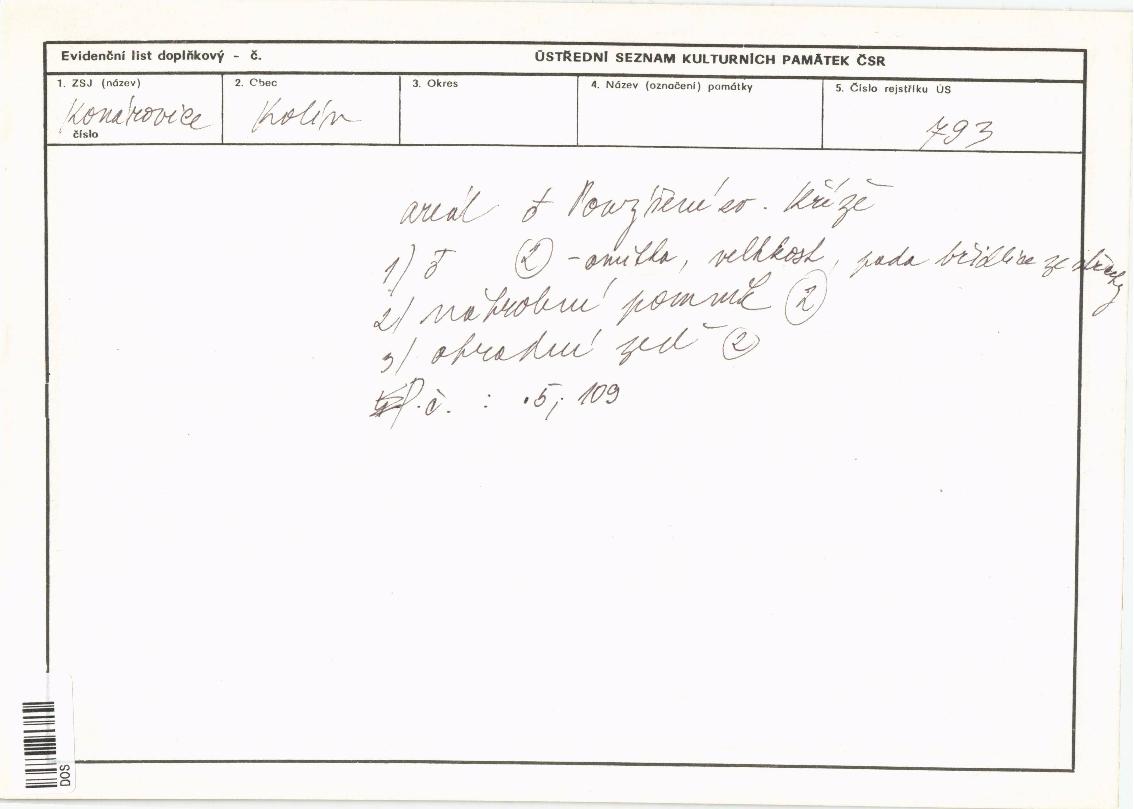 Evidenční list doplňkový - č. ÚSTŘEDNÍ SEZNAM KULTURNÍCH PAMÁTEK ČSR
1. ZSJ (název) 2. Obec 3. Okres 4. Název (označení) památky 5. Číslo rejstříku ÚS
Konárovice Kolín 793
číslo
areál ♁ Povýšení sv. Kříže
1) ♁ (2) - omítka, vlhkost, padá břidlice ze střechy
2) náhrobní pomník (2)
3) ohradní zeď (2)
P.č. : .5; 109
DOS